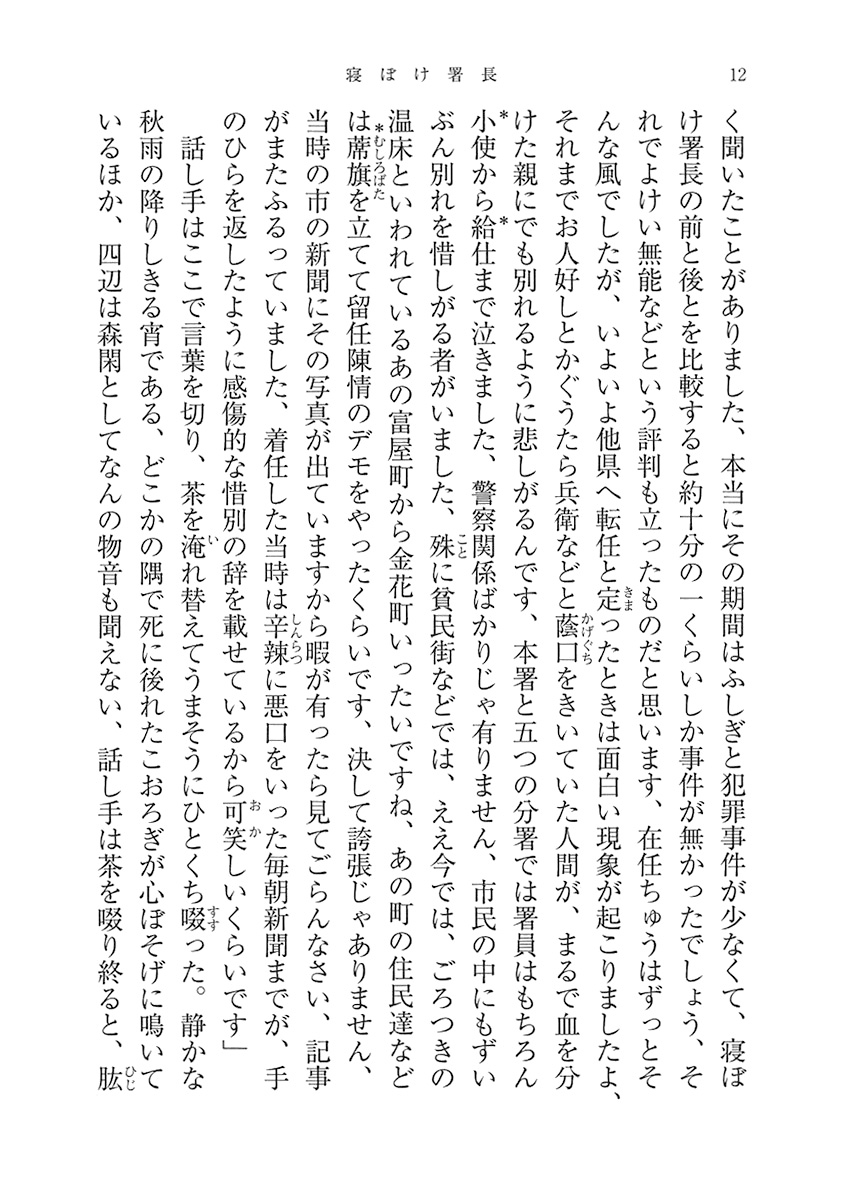 寝ぼけ署長
12
く聞いたことがありました、本当にその期間はふしぎと犯罪事件が少なくて、寝ぼ
け署長の前と後とを比較すると約十分の一くらいしか事件が無かったでしょう、そ
れでよけい無能などという評判も立ったものだと思います、在任ちゅうはずっとそ
んな風でしたが、いよいよ他県へ転任と定ったときは面白い現象が起こりましたよ、
きま
それまでお人好しとかぐうたら兵衛などと蔭口をきいていた人間が、まるで血を分
かげぐち
けた親にでも別れるように悲しがるんです、本署と五つの分署では署員はもちろん
*小使から*給仕まで泣きました、警察関係ばかりじゃ有りません、市民の中にもずい
ぶん別れを惜しがる者がいました、殊に貧民街などでは、ええ今では、ごろつきの
こと
温床といわれているあの富屋町から金花町いったいですね、あの町の住民達など
は*蓆旗を立てて留任陳情のデモをやったくらいです、決して誇張じゃありません、
むしろばた
当時の市の新聞にその写真が出ていますから暇が有ったら見てごらんなさい、記事
がまたふるっていました、着任した当時は辛辣に悪口をいった毎朝新聞までが、手
しんらつ
のひらを返したように感傷的な惜別の辞を載せているから可笑しいくらいです」
おか
話し手はここで言葉を切り、茶を淹れ替えてうまそうにひとくち啜った。静かな
い
すす
秋雨の降りしきる宵である、どこかの隅で死に後れたこおろぎが心ぼそげに鳴いて
いるほか、四辺は森閑としてなんの物音も聞えない、話し手は茶を啜り終ると、肱
ひじ